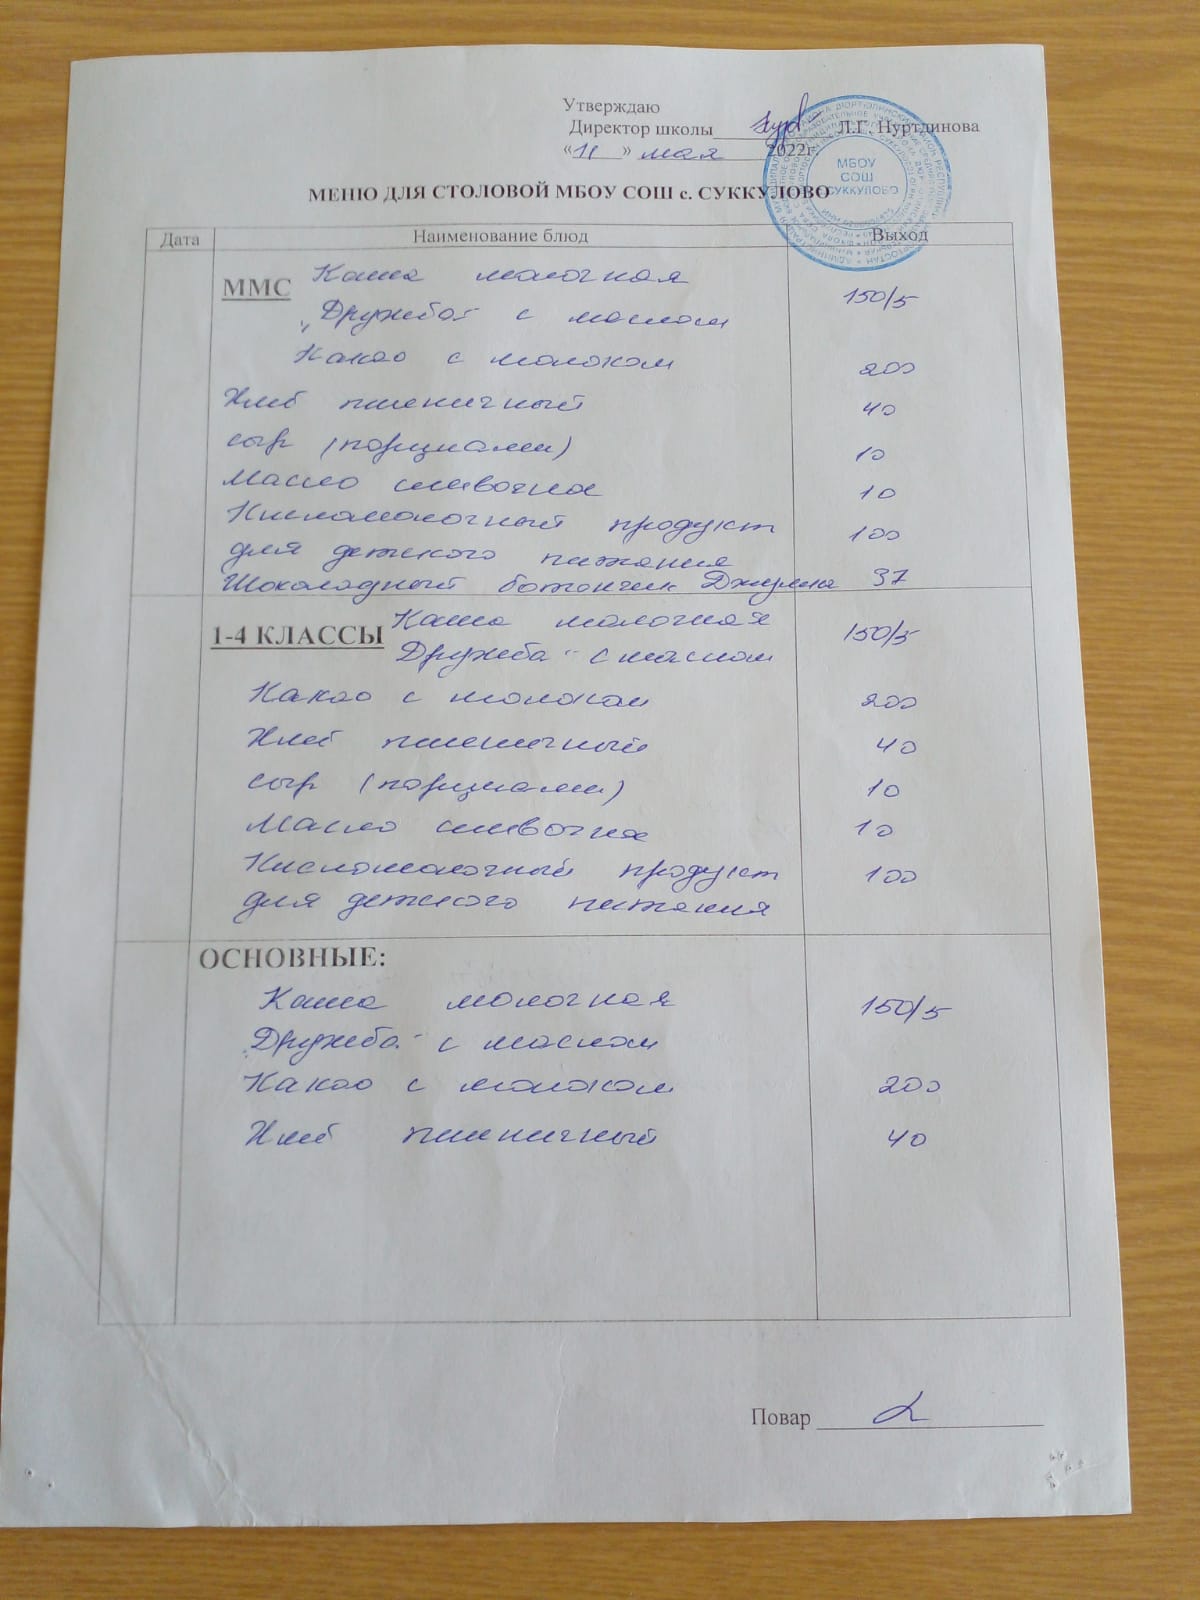 Утверждаю
Директор школы Л.Г. Нуртдинова
«11» мая 2022г.
МБОУ
СОШ
СУККУЛОВО
МЕНЮ ДЛЯ СТОЛОВОЙ МБОУ СОШ с. СУККУЛОВО
Дата Наименование блюд Выход
ММС Каша молочная
„Дружба" с маслом 150/5
Какао с молоком 200
Хлеб пшеничный 40
сыр (порциями) 10
Масло сливочное 10
Кисломолочный продукт 100
для детского питания
Шоколадный батончик 37
1-4 КЛАССЫ Каша молочная 150/5
Дружба" с маслом
Какао с молоком 200
Хлеб пшеничный 40
сыр (порциями) 10
Масло сливочное 10
Кисломолочный продукт 100
для детского питания
ОСНОВНЫЕ:
Каша молочная 150/5
„Дружба" с маслом
Какао с молоком 200
Хлеб пшеничный 40
Повар